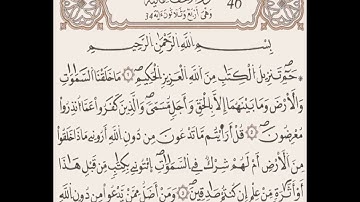 وَهِيَ أَرْبَعٌ وَثَلَاثُونَ آيَة 34
بِسْمِ اللَّهِ الرَّحْمَٰنِ الرَّحِيمِ
حمٓ ۝ تَنزِيلُ الْكِتَٰبِ مِنَ اللَّهِ الْعَزِيزِ الْحَكِيمِ ۝ مَا خَلَقْنَا السَّمَٰوَٰتِ
وَالْأَرْضَ وَمَا بَيْنَهُمَا إِلَّا بِالْحَقِّ وَأَجَلٍ مُّسَمًّى وَالَّذِينَ كَفَرُوا عَمَّا أُنذِرُوا
مُعْرِضُونَ ۝ قُلْ أَرَءَيْتُم مَّا تَدْعُونَ مِن دُونِ اللَّهِ أَرُونِي مَاذَا خَلَقُوا
مِنَ الْأَرْضِ أَمْ لَهُمْ شِرْكٌ فِي السَّمَٰوَٰتِ ائْتُونِي بِكِتَٰبٍ مِّن قَبْلِ هَٰذَا
أَوْ أَثَٰرَةٍ مِّنْ عِلْمٍ إِن كُنتُمْ صَٰدِقِينَ ۝ وَمَنْ أَضَلُّ مِمَّن يَدْعُوا مِن دُونِ اللَّهِ